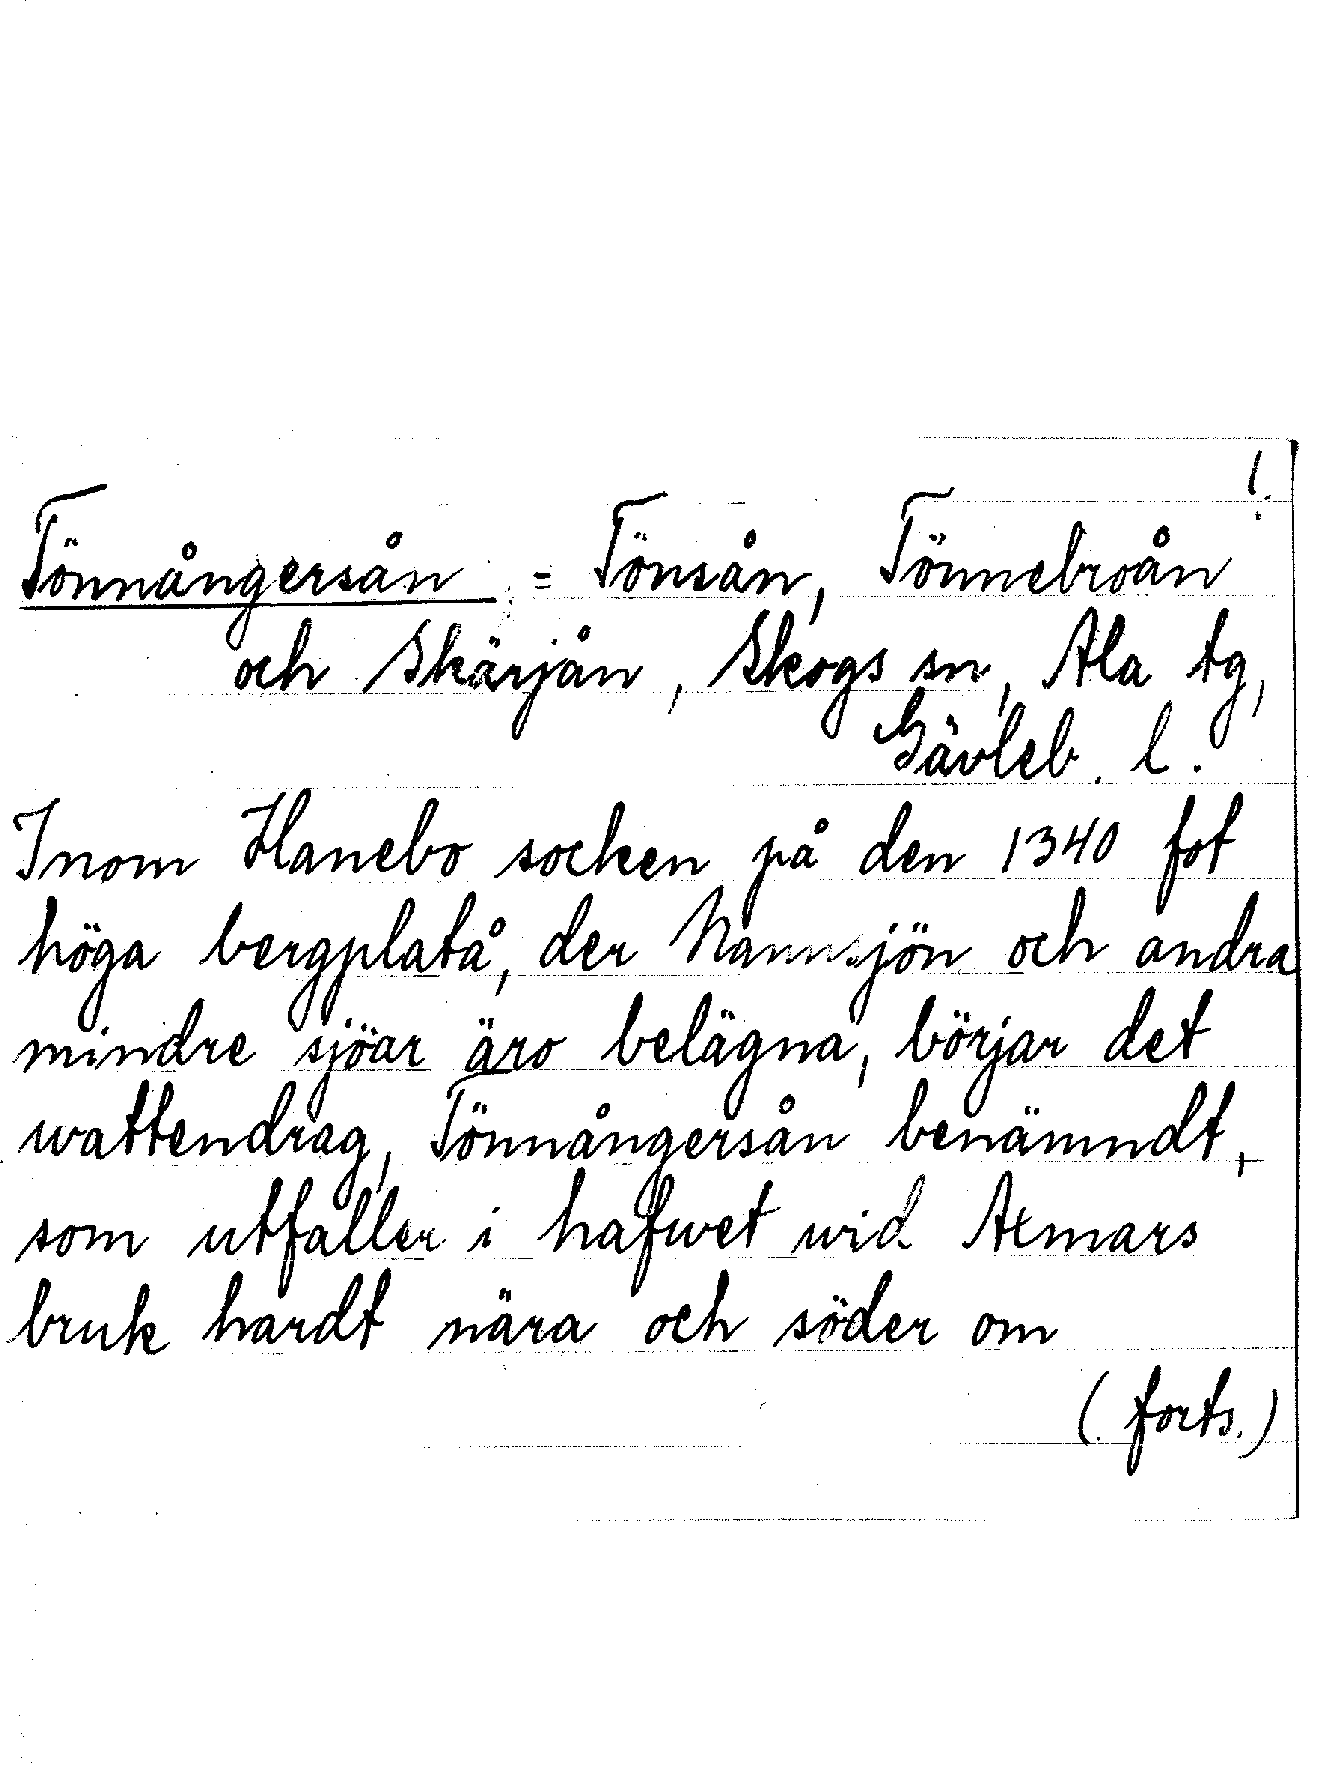 1.
Tönnångersån = Tönsån, Tönnebroån
och Skärjån, Skogs sn, Ala tg,
Gävleb. l.
Inom Hanebo socken på den 1340 fot
höga bergplatå, der Nannsjön och andra
mindre sjöar äro belägna, börjar det
wattendrag, Tönnångersån benämndt,
som utfaller i hafwet wid Axmars
bruk hardt nära och söder om
(forts.)